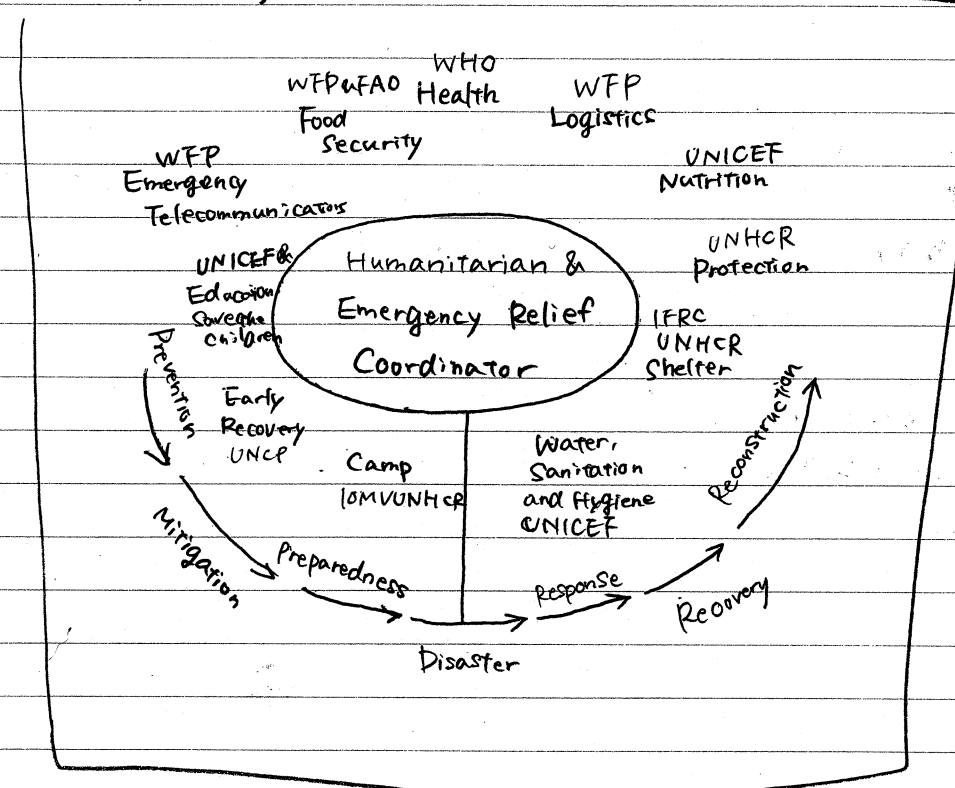 WHO
Health
WFP&FAO
Food
Security
WFP
Logistics
WFP
Emergency
Telecommunications
UNICEF
Nutrition
UNICEF&
Edacaion
Savethe
Children
Humanitarian &
Emergency Relief
Coordinator
UNHCR
Protection
IFRC
UNHCR
Shelter
Prevention
Early
Recovery
UNCP
Camp
IOMVUNHCR
Water,
Sanitation
and Hygiene
UNICEF
Reconstruction
Mitigation
Preparedness
Response
Recovery
Disaster